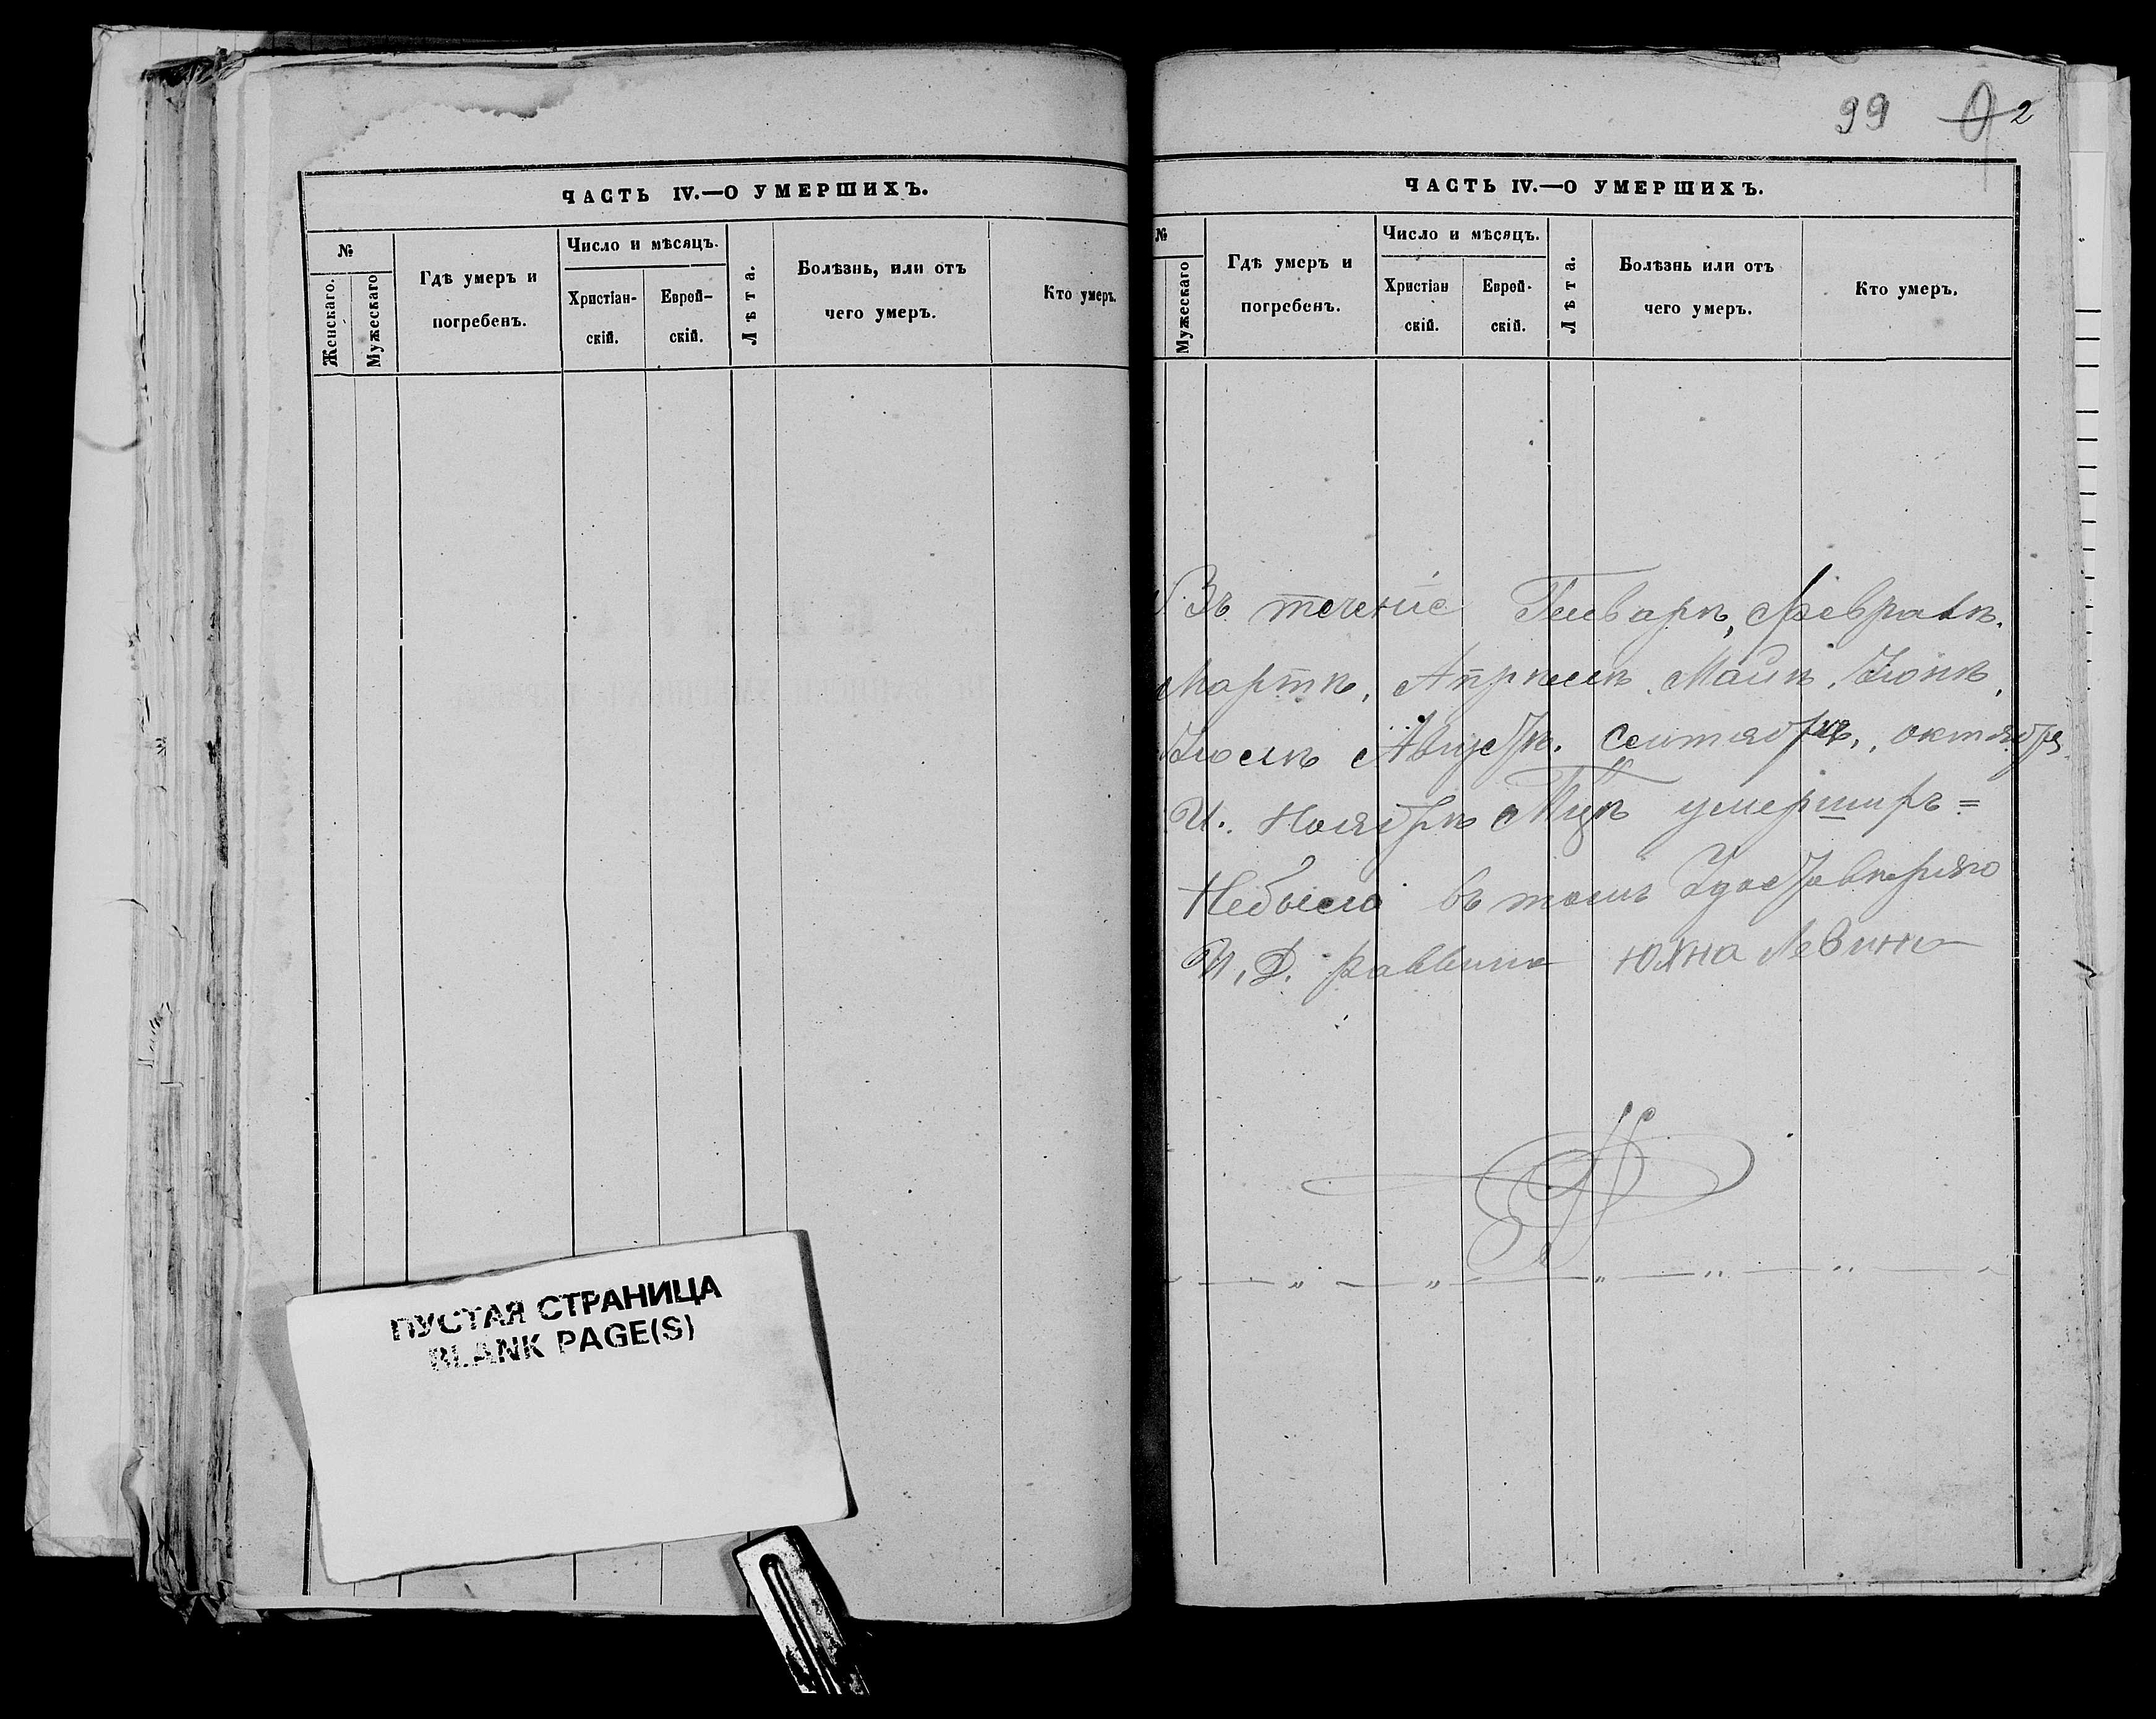 ЧАСТЬ IV.—О УМЕРШИХЪ.
№
Женскаго.
Мужескаго
Гдѣ умеръ и
погребенъ.
Число и мѣсяцъ.
Христіан-
скій.
Еврей-
скій.
Лѣта.
Болѣзнь, или отъ
чего умеръ.
Кто умеръ.
ПУСТАЯ СТРАНИЦА
BLANK PAGE(S)
99 2
ЧАСТЬ IV.—О УМЕРШИХЪ.
№
Мужескаго
Гдѣ умеръ и
погребенъ.
Число и мѣсяцъ.
Христіан
скій.
Еврей-
скій.
Лѣта.
Болѣзнь или отъ
чего умеръ.
Кто умеръ.
Въ теченіе Генварѣ, Февралѣ.
Мартѣ, Апрѣлѣ, Маиѣ, Іюнѣ,
Іюлѣ Августѣ. Сентябрѣ, октября
И. Ноябрѣ Мцѣ умершихъ =
Небыло въ томъ Удостовѣряю
И. Д. Раввина Юхна Левинъ